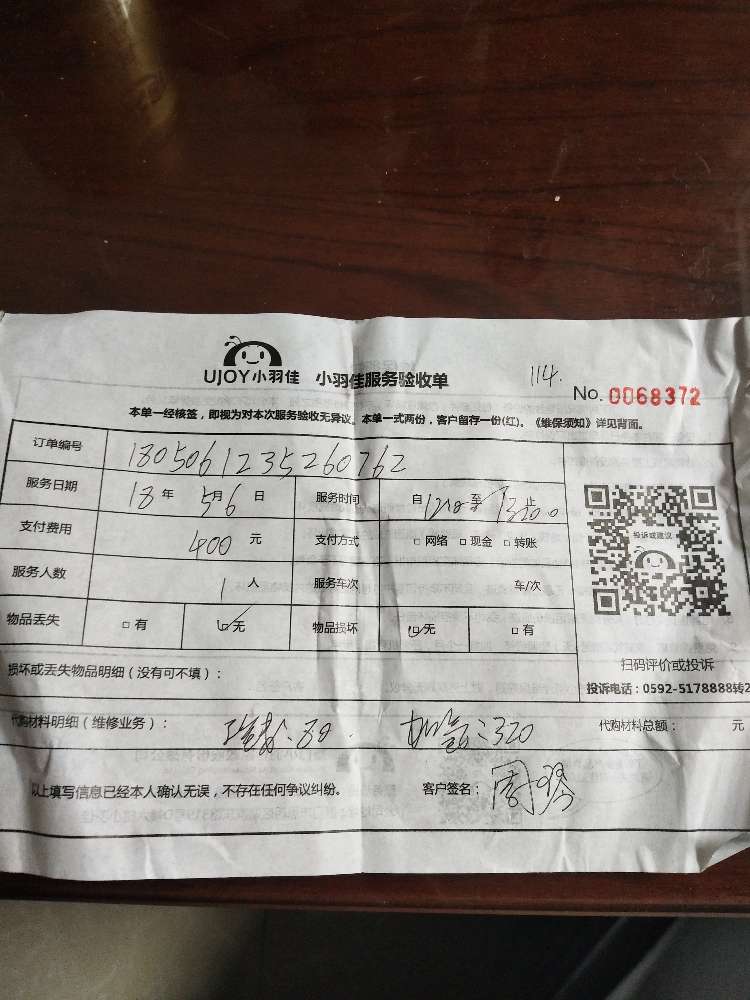 UJOY小羽佳 小羽佳服务验收单 114.
No. 0068372
本单一经核签，即视为对本次服务验收无异议。本单一式两份，客户留存一份(红)。《维保须知》详见背面。
订单编号 1805061235260762
服务日期 18年 5月6日 服务时间 自 至 止
支付费用 400元 支付方式 □网络 □现金 □转账
服务人数 1人 服务车次 车/次
物品丢失 □有 ☑无 物品损坏 ☑无 □有
投诉或建议
扫码评价或投诉
投诉电话：0592-5178888转2
损坏或丢失物品明细（没有可不填）：
代购材料明细（维修业务）： 80. 320 代购材料总额： 元
以上填写信息已经本人确认无误，不存在任何争议纠纷。 客户签名： 周